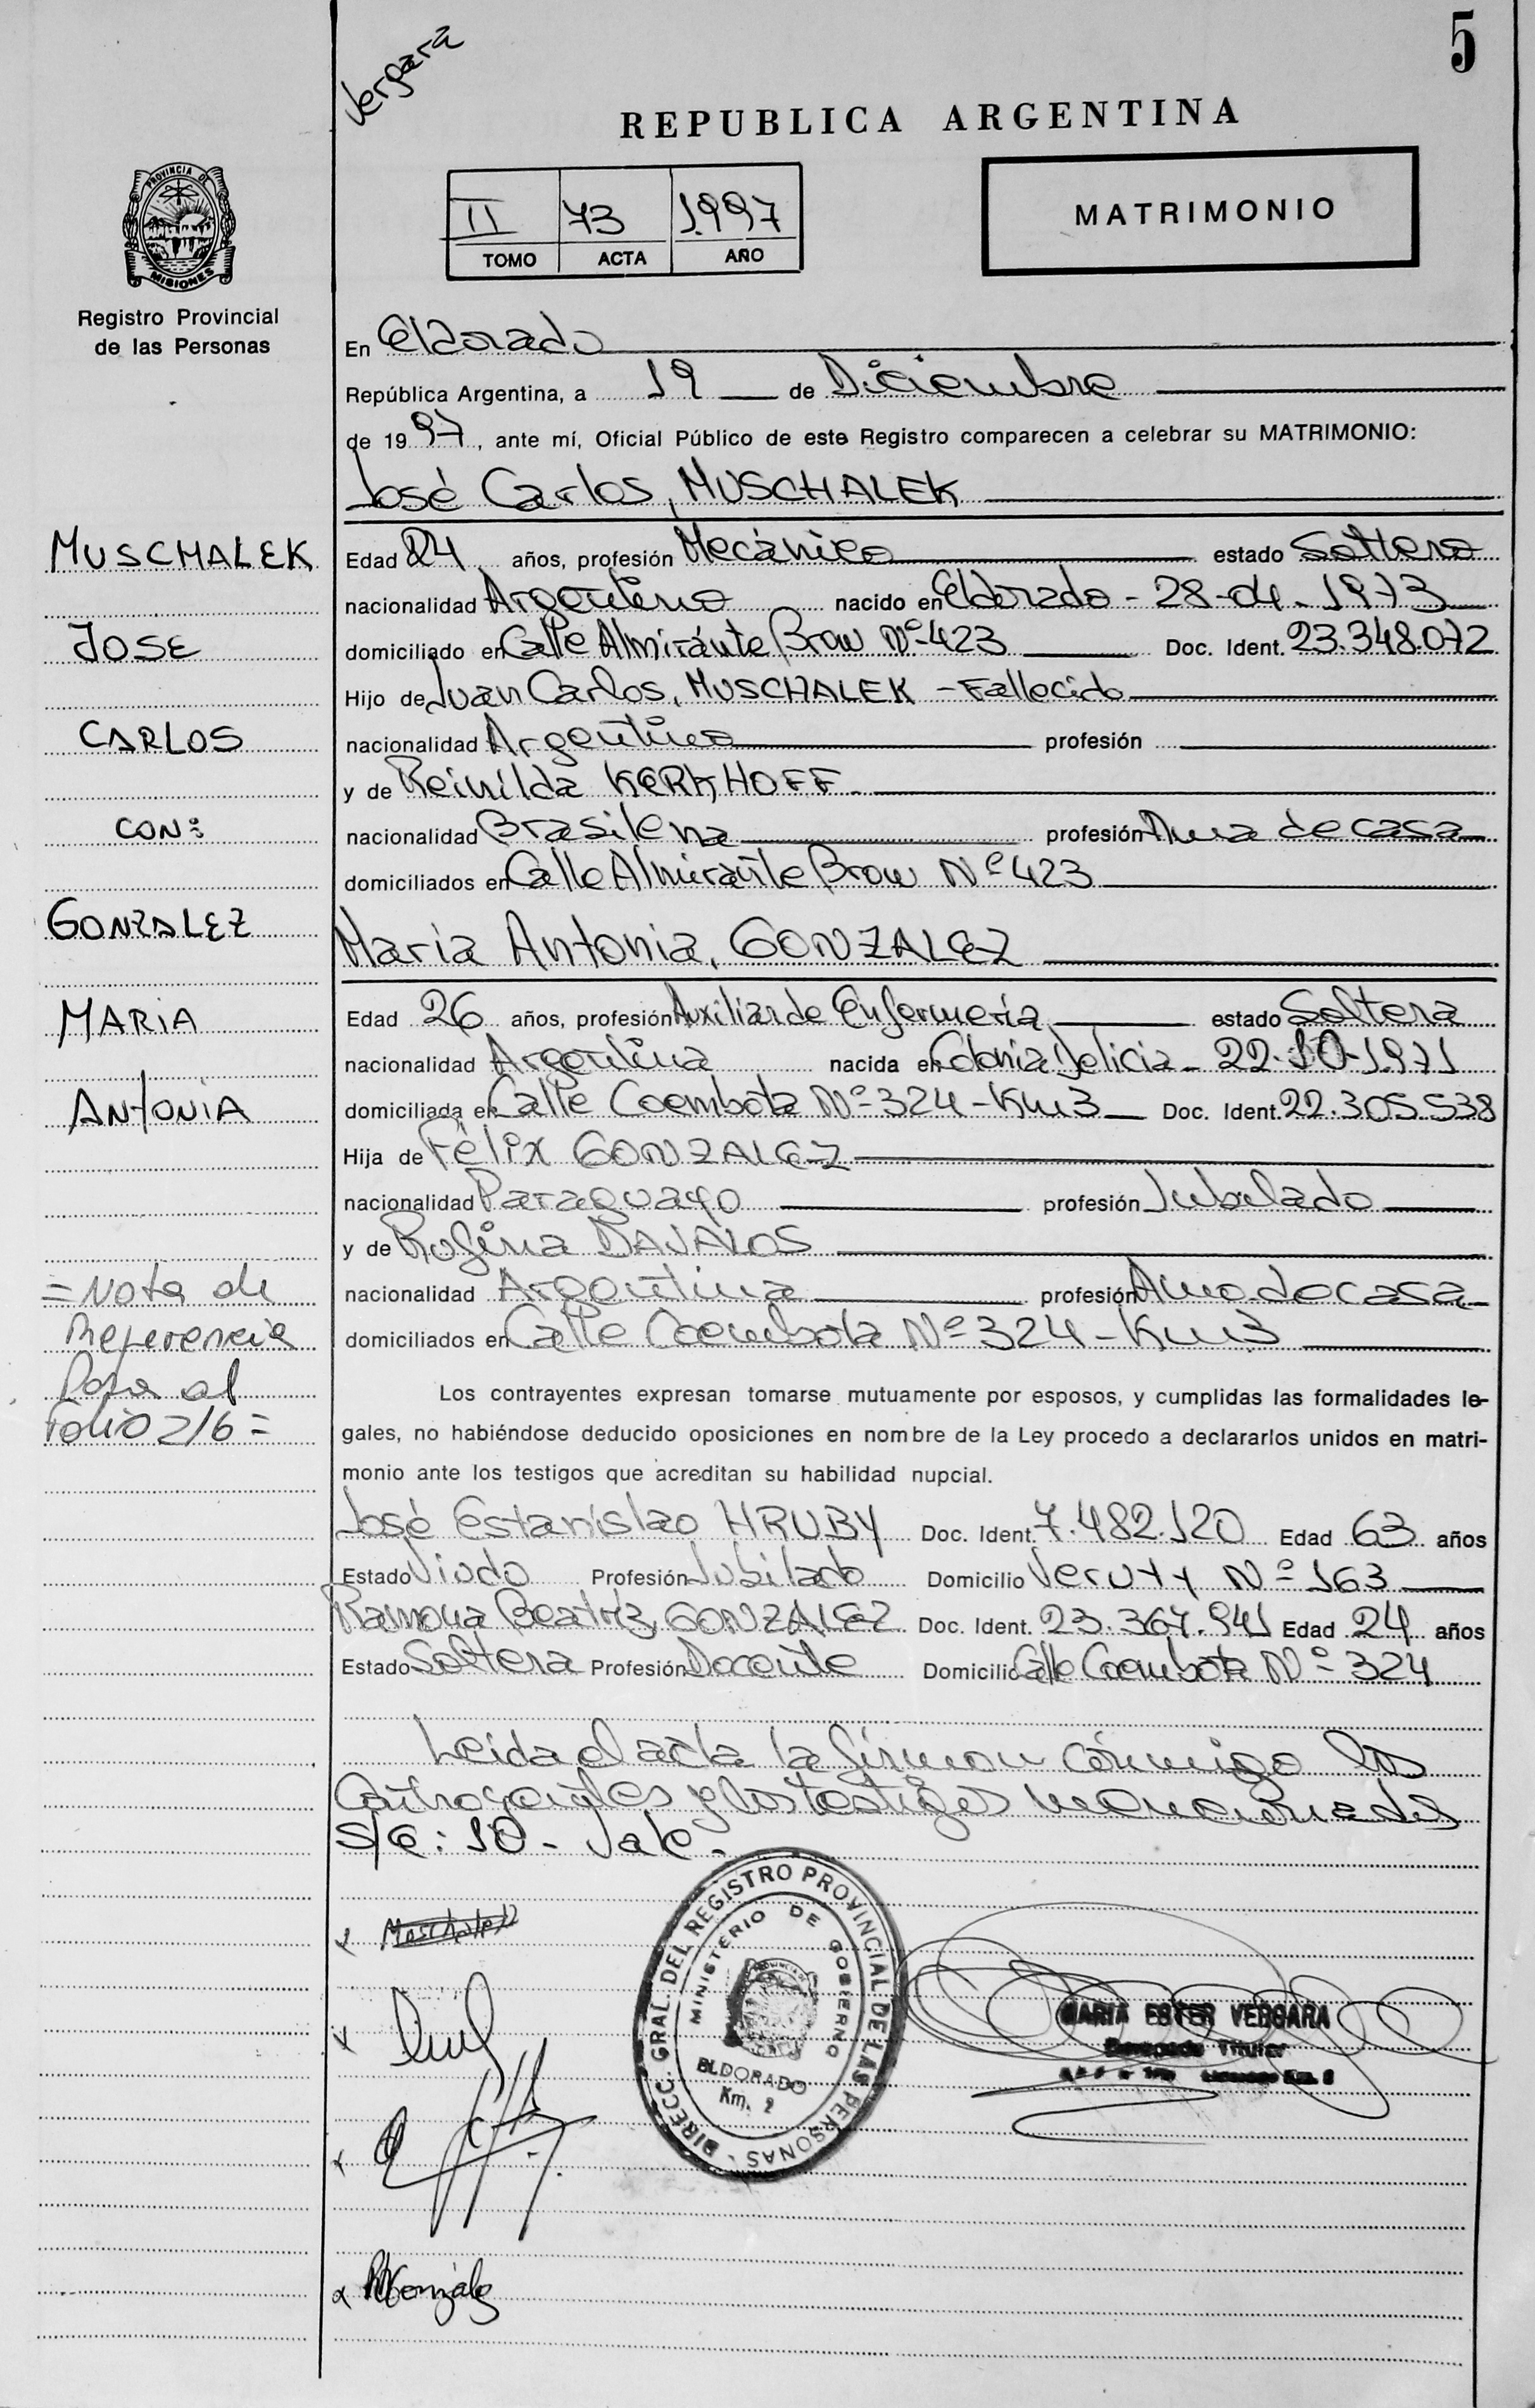 5
Vergara
REPUBLICA ARGENTINA
PROVINCIA DE
MISIONES
II 73 1.997
TOMO ACTA AÑO
MATRIMONIO
Registro Provincial
de las Personas
En Eldorado
República Argentina, a 19 de Diciembre
de 19 97, ante mí, Oficial Público de este Registro comparecen a celebrar su MATRIMONIO:
José Carlos, MUSCHALEK
MUSCHALEK
JOSE
CARLOS
CON:
GONZALEZ
MARIA
ANTONIA
Edad 24 años, profesión Mecánico estado Soltero
nacionalidad Argentino nacido en Eldorado - 28-04-1973
domiciliado en Calle Almiránte Brow Nº 423 Doc. Ident. 23.348.072
Hijo de Juan Carlos, MUSCHALEK - Fallecido
nacionalidad Argentino profesión
y de Reinilda KERKHOFF
nacionalidad Brasilena profesión Ama de casa
domiciliados en Calle Almirante Brow Nº 423
Maria Antonia, GONZALEZ
Edad 26 años, profesión Auxiliar de Enfermería estado Soltera
nacionalidad Argentina nacida en Colonia Delicia - 22-10-1.971
domiciliada en Calle Coembota Nº 324 - Km3 Doc. Ident. 22.305.538
Hija de Félix GONZALEZ
nacionalidad Paraguayo profesión Jubilado
y de Rofina DAVALOS
nacionalidad Argentina profesión Ama de casa
domiciliados en Calle Coembota Nº 324 - Km3
= Nota de
Referencia
Pasa al
Folio 216 =
Los contrayentes expresan tomarse mutuamente por esposos, y cumplidas las formalidades le-
gales, no habiéndose deducido oposiciones en nombre de la Ley procedo a declararlos unidos en matri-
monio ante los testigos que acreditan su habilidad nupcial.
José Estanislao HRUBY Doc. Ident. 7.482.120 Edad 63 años
Estado Viudo Profesión Jubilado Domicilio Verutty Nº 163
Ramona Beatriz GONZALEZ Doc. Ident. 23.367.941 Edad 24 años
Estado Soltera Profesión Docente Domicilio Calle Coembota Nº 324
Leida el acta la firman cónmigo los
Contrayentes y los testigos mencionados
S/e: 10 - Vale.
Muschalek
DIRECC. GRAL. DEL REGISTRO PROVINCIAL DE LAS PERSONAS
MINISTERIO DE GOBIERNO
ELDORADO
Km. 2
MARIA ESTER VERGARA
Titular
RGonzález